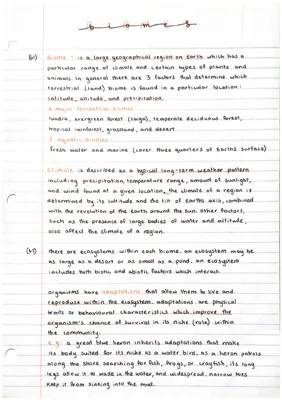 biomes
(61) Biome : is a large geographical region on Earth which has a
particular range of climate and certain types of plants and
animals. In general there are 3 factors that determine which
terrestrial (land) biome is found in a particular location:
latitude, altitude, and precipitation.
6 major terrestrial biomes
tundra, evergreen forest (taiga), temperate deciduous forest,
tropical rainforest, grassland, and desert
2 aquatic biomes
fresh water and marine (cover three quarters of Earth's surface)
Climate is described as a typical long-term weather pattern
including precipitation, temperature range, amount of sunlight,
and wind found at a given location, the climate of a region is
determined by its latitude and the tilt of Earth's axis, combined
with the revolution of the earth around the sun. other factors,
such as the presence of large bodies of water and altitude,
also affect the climate of a region.
there are ecosystems within each biome. an ecosystem may be
as large as a desert or as small as a pond. an ecosystem
includes both biotic and abiotic factors which interact.
organisms have adaptations that allow them to live and
reproduce within the ecosystem. adaptations are physical
traits or behavioural characteristics which improve the
organism's chance of survival in its niche (role) within
the community.
e.g: a great blue heron inherits adaptations that make
its body suited for its niche as a water bird. as a heron patrols
along the shore searching for fish, frogs, or crayfish, its long
legs allow it to wade in the water, and widespread, narrow toes
keep it from sinking into the mud.